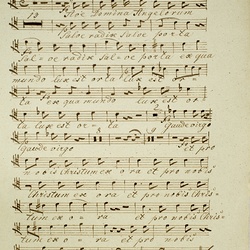 19
Ave Domina Angelorum
Salve radix salve porta
Salve radix salve porta ex qua
mundo lux est orta lux est or
ta ex qua mundo lux est or
ta lux est orta Gaude virgo
Gaude virgo et pro
nobis Christum exora et pro nobis
Christum exora et pro nobis Chris-
tum exora et pro nobis Chris-
tum exora et pro nobis